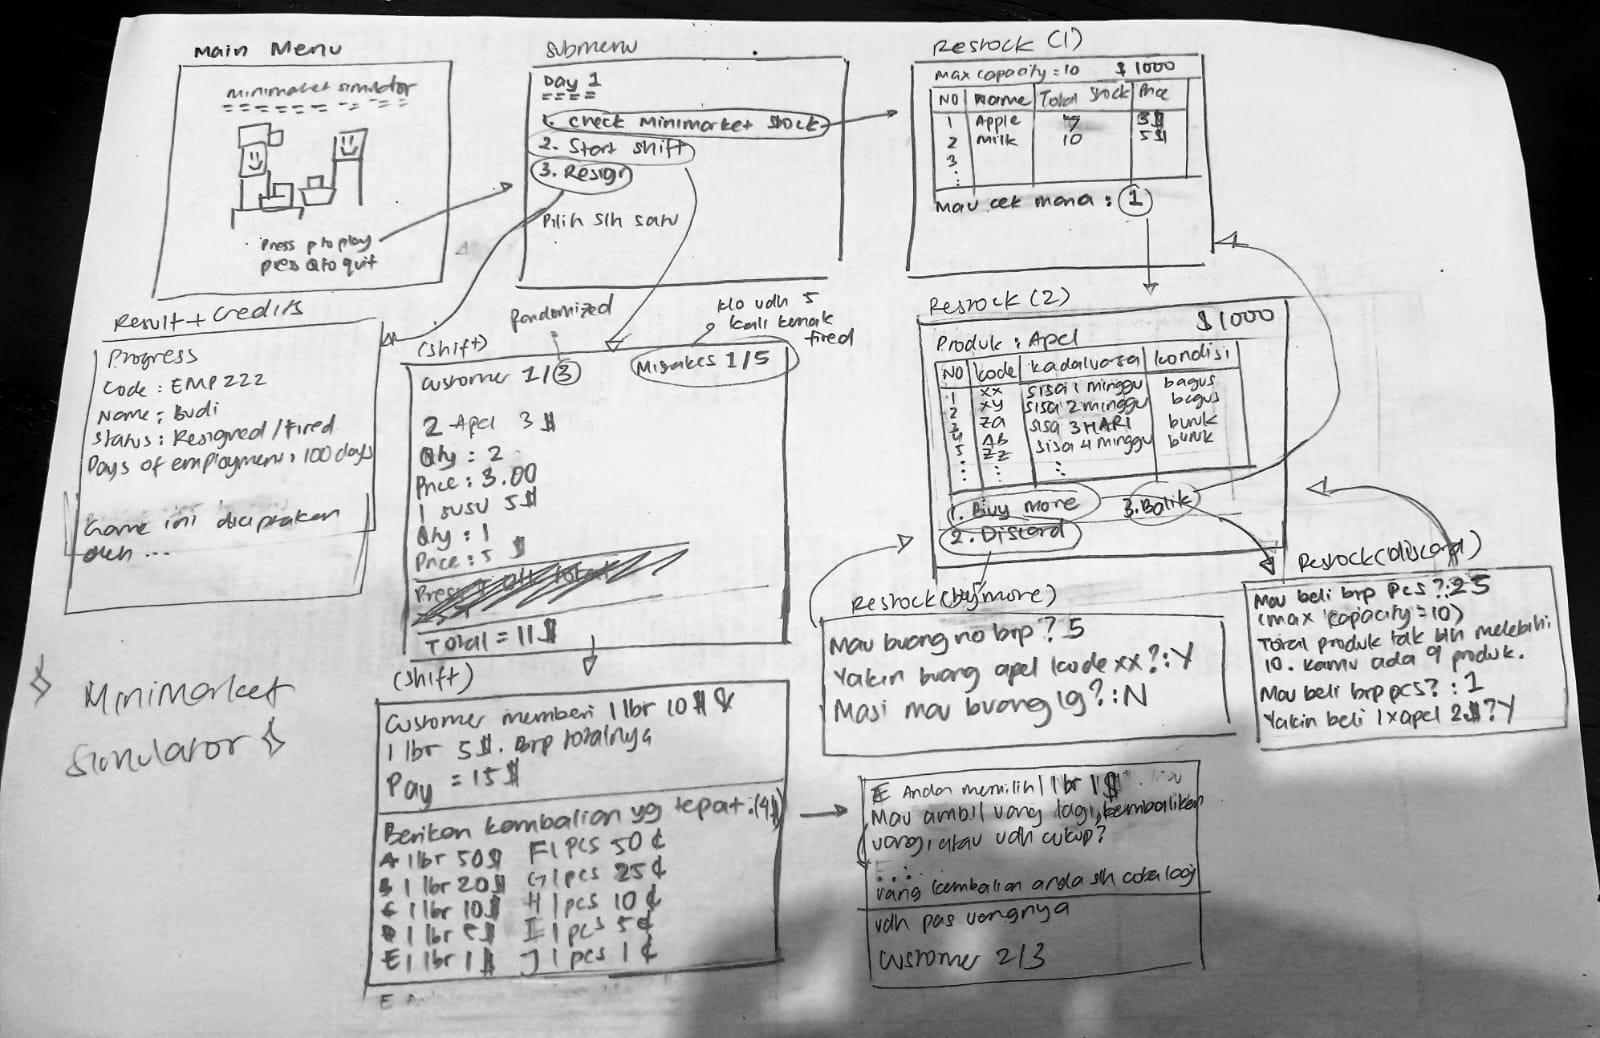 Main Menu
minimarket simulator
Press p to play
press Q to quit
Submenu
Day 1
1. Check Minimarket Stock
2. Start shift
3. Resign
Pilih slh satu
Restock (1)
max capacity = 10 $ 1000
NO Name Total Stock Price
1 Apple 7 3$
2 Milk 10 5$
3
Mau cek mana : 1
Result + Credits
Progress
Code : EMP 222
Name : Budi
Status : Resigned / Fired
Days of employment : 100 days
Game ini diciptakan
oleh ...
Randomized
klo udh 5
kali kenak
fired
(shift)
Customer 1/3 Mistakes 1/5
2 Apel 3 $
Qty : 2
Price : 3.00
1 susu 5$
Qty : 1
Price : 5 $
Total = 11$
Restock (2)
Produk : Apel $ 1000
NO kode kadaluasa kondisi
1 xx sisa 1 minggu bagus
2 xy sisa 2 minggu bagus
3 za sisa 3 HARI buruk
4 AB sisa 4 minggu buruk
5 zz
1. Buy More 3. Balik
2. Discard
Restock (buy more)
Mau buang no brp ? 5
Yakin buang apel kode xx ? : Y
Masi mau buang lg ? : N
Restock (discard)
Mau beli brp pcs ? : 25
(max capacity = 10)
Total produk tak blh melebihi
10. Kamu ada 9 produk.
Mau beli brp pcs? : 1
Yakin beli 1x apel 2$ ? Y
Minimarket
Simulator
(shift)
Customer memberi 1 lbr 10 $ &
1 lbr 5$. Brp totalnya
Pay = 15$
Berikan kembalian yg tepat. (4$)
A 1 lbr 50$ F 1 pcs 50 ¢
B 1 lbr 20$ G 1 pcs 25 ¢
C 1 lbr 10$ H 1 pcs 10 ¢
D 1 lbr 5$ I 1 pcs 5 ¢
E 1 lbr 1$ J 1 pcs 1 ¢
E
E Anda memilih 1 lbr 1$
Mau ambil uang lagi, kembalikan
uang, atau udh cukup?
uang kembalian anda slh coba lagi
udh pas uangnya
Customer 2/3